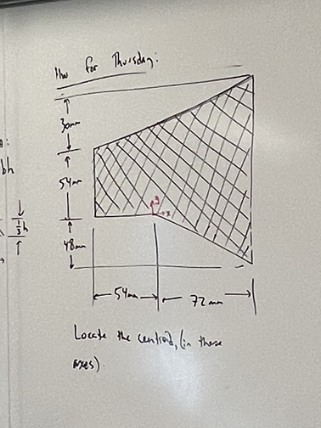 HW for Thursday:
30mm
54mm
bh
y
x
1/3 h
48mm
54mm
72mm
Locate the centroid, (in these
axes)